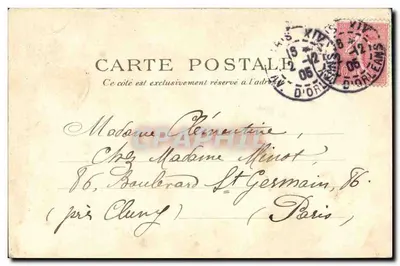 CARTE POSTALE
Ce côté est exclusivement réservé à l'adresse
XIV
16
2 12
05
AV. D'ORLEANS
XIV
6 12
05
D'ORLEANS
Madame Clémentine,
Chez Madame Minot,
86, Boulevard St Germain, 86
(près Cluny) (Paris)